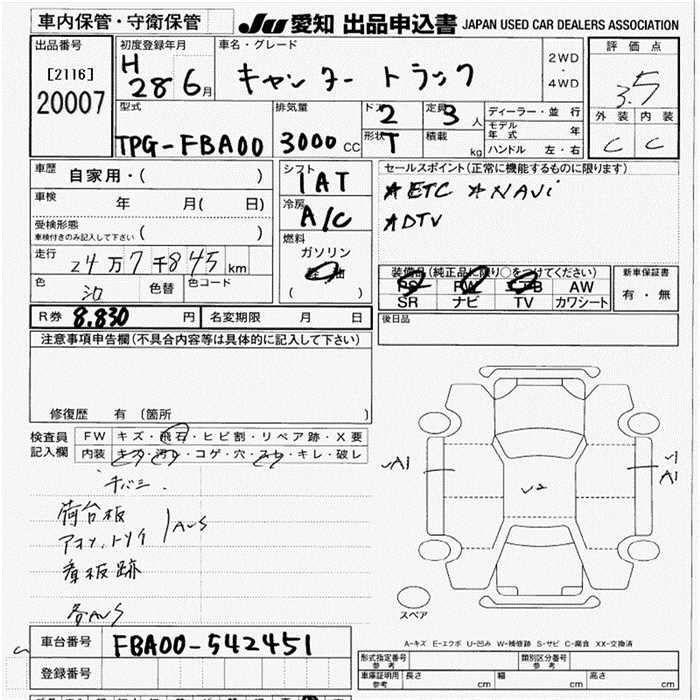 車内保管・守衛保管
JU 愛知 出品申込書 JAPAN USED CAR DEALERS ASSOCIATION
出品番号
[2116]
20007
初度登録年月
H 28 6月
車名・グレード
キャンター トラック
2WD
・
4WD
評価点
3.5
外装 内装
C C
型式
TPG-FBA00
排気量
3000 CC
ドア 2
定員 3 人
形状 T
積載 kg
ディーラー・並行
モデル年式 年
ハンドル 左・右
車歴 自家用・( )
車検 年 月( 日)
受検形態
車検付きのみ記入して下さい ( )
走行 24万7千845 km
色 シロ 色替 色コード
シフト
1AT
冷房
A/C
燃料
ガソリン
軽油
( )
セールスポイント(正常に機能するものに限ります)
*ETC *NAVi
*DTV
装備品(純正品に限り○をつけてください)
PS PW エアB AW
SR ナビ TV カワシート
新車保証書
有・無
R券 8,830 円 名変期限 月 日
後日品
注意事項申告欄(不具合内容等は具体的に記入して下さい)
修復歴 有 (箇所 )
検査員
記入欄
FW キズ・飛石・ヒビ割・リペア跡・X要
内装 キズ・汚レ・コゲ・穴・スレ・キレ・破レ
荷台板
アオリ、トリイ AUS
看板跡
各AUS
A1
U2
A1
スペア
A-キズ E-エクボ U-凹み W-補修跡 S-サビ C-腐食 XX-交換済
車台番号 FBA00-542451
登録番号
形式指定番号 参考
類別区分番号 参考
車庫証明用 参考 長さ cm 幅 cm 高さ cm